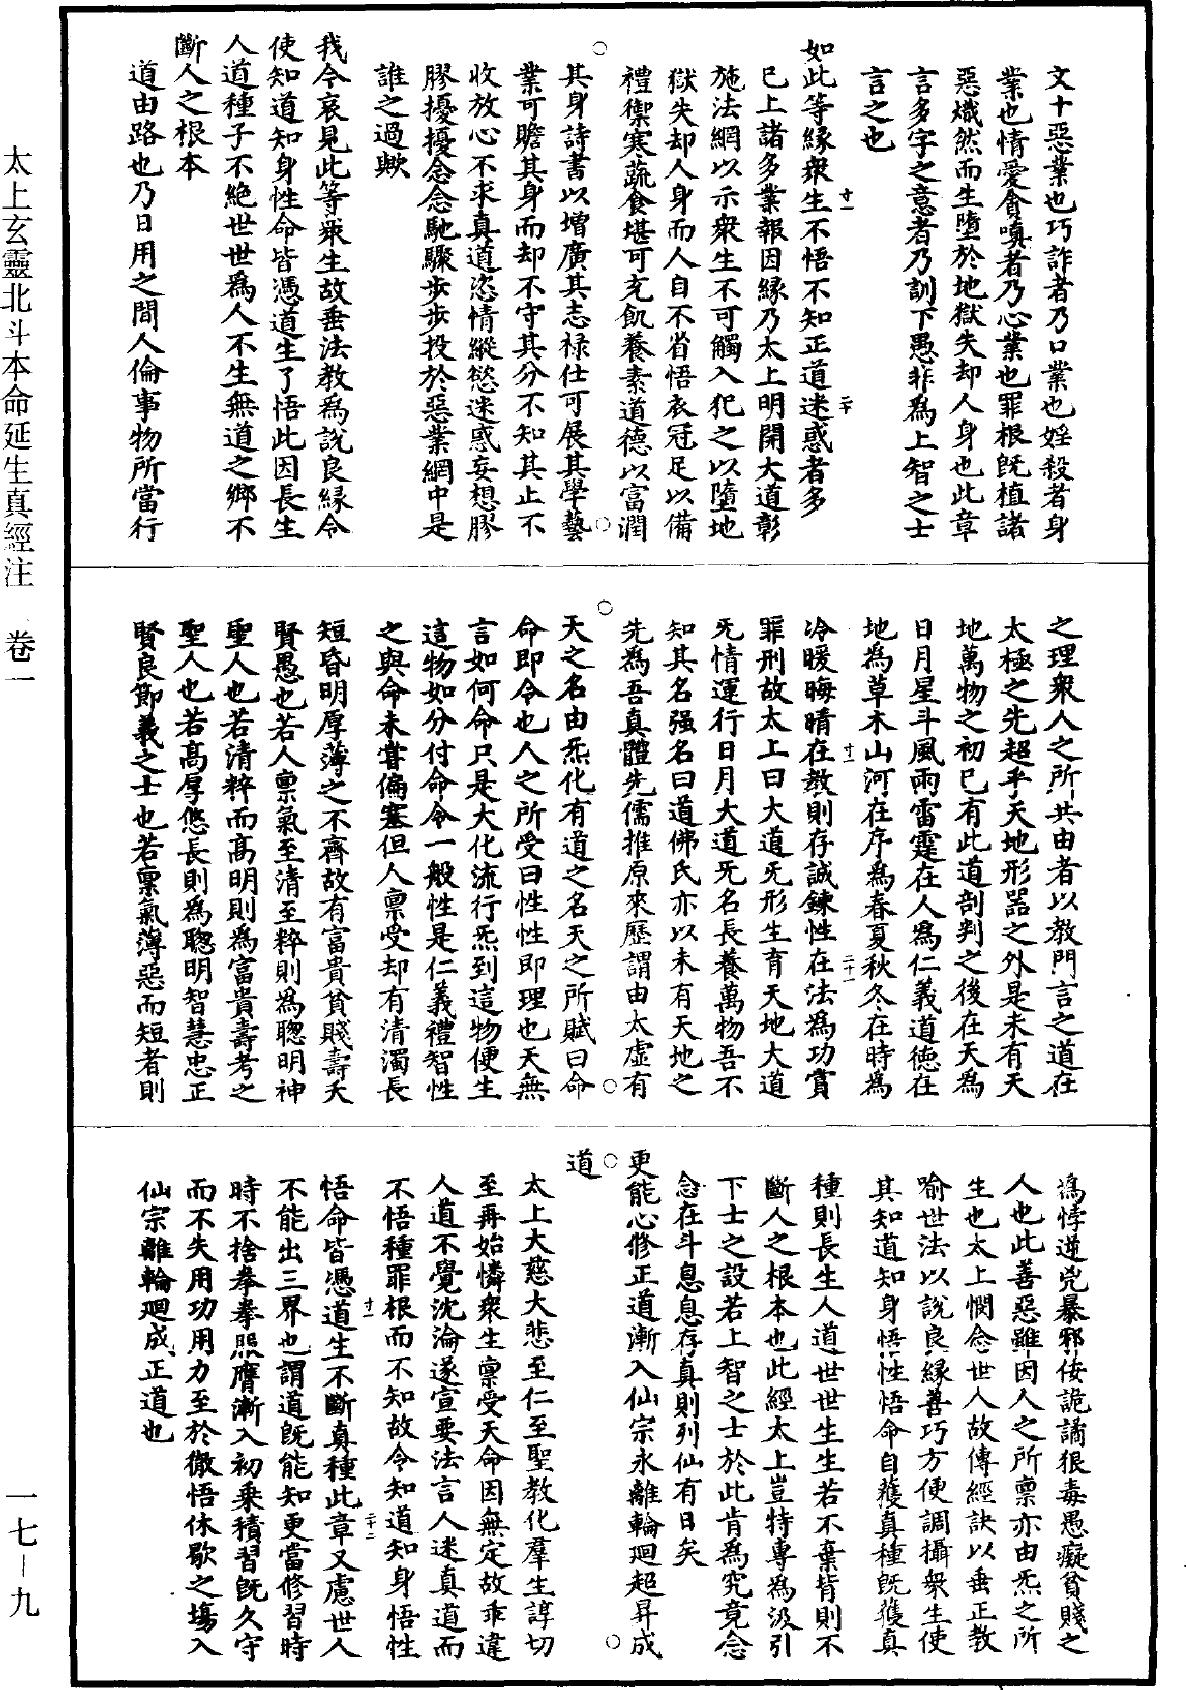 文十惡業也巧詐者乃口業也婬殺者身
業也情愛貪嗔者乃心業也罪根旣植諸
惡熾然而生墮於地獄失却人身也此章
言多字之意者乃訓下愚非爲上智之士
言之也
如此等緣衆生不悟不知正道迷惑者多
已上諸多業報因緣乃太上明開大道彰
施法網以示衆生不可觸入犯之以墮地
獄失却人身而人自不省悟衣冠足以備
禮禦寒蔬食堪可充飢養素道德以富潤
其身詩書以增廣其志祿仕可展其學藝
業可贍其身而却不守其分不知其止不
收放心不求真道恣情縱慾迷惑妄想膠
膠擾擾念念馳驟步步投於惡業網中是
誰之過歟
我今哀見此等衆生故垂法教爲說良緣令
使知道知身性命皆憑道生了悟此因長生
人道種子不絕世世爲人不生無道之鄉不
斷人之根本
道由路也乃日用之間人倫事物所當行
之理衆人之所共由者以教門言之道在
太極之先超乎天地形器之外是未有天
地萬物之初已有此道剖判之後在天爲
日月星斗風雨雷霆在人爲仁義道德在
地爲草木山河在序爲春夏秋冬在時爲
冷暖晦晴在教則存誠鍊性在法爲功賞
罪刑故太上曰大道旡形生育天地大道
旡情運行日月大道旡名長養萬物吾不
知其名强名曰道佛氏亦以未有天地之
先爲吾真體先儒推原來歷謂由太虛有
天之名由炁化有道之名天之所賦曰命
命即令也人之所受曰性性即理也天無
言如何命只是大化流行炁到這物便生
這物如分付命令一般性是仁義禮智性
之與命未嘗偏塞但人禀受却有清濁長
短昏明厚薄之不齊故有富貴貧賤壽夭
賢愚也若人禀氣至清至粹則爲聰明神
聖人也若清粹而高明則爲富貴壽考之
聖人也若高厚悠長則爲聰明智慧忠正
賢良節義之士也若禀氣薄惡而短者則
爲悖逆兇暴邪佞詭譎狠毒愚癡貧賤之
人也此善惡雖因人之所禀亦由炁之所
生也太上憫念世人故傳經訣以垂正教
喻世法以說良緣善巧方便調攝衆生使
其知道知身悟性悟命自獲真種旣獲真
種則長生人道世世生生若不棄背則不
斷人之根本也此經太上豈特專爲汲引
下士之設若上智之士於此肯爲究竟念
念在斗息息存真則列仙有日矣
更能心修正道漸入仙宗永離輪廻超昇成
道
太上大慈大悲至仁至聖教化羣生諄切
至再始憐衆生禀受天命因無定故乖違
人道不覺沈淪遂宣要法言人迷真道而
不悟種罪根而不知故令知道知身悟性
悟命皆憑道生不斷真種此章又慮世人
不能出三界也謂道旣能知更當修習時
時不捨拳拳照膺漸入初乘積習旣久守
而不失用功用力至於徹悟休歇之塲入
仙宗離輪廻成正道也
十一
二十
十一
二十一
十一
二十二
太上玄靈北斗本命延生真經注 卷一
一七－九